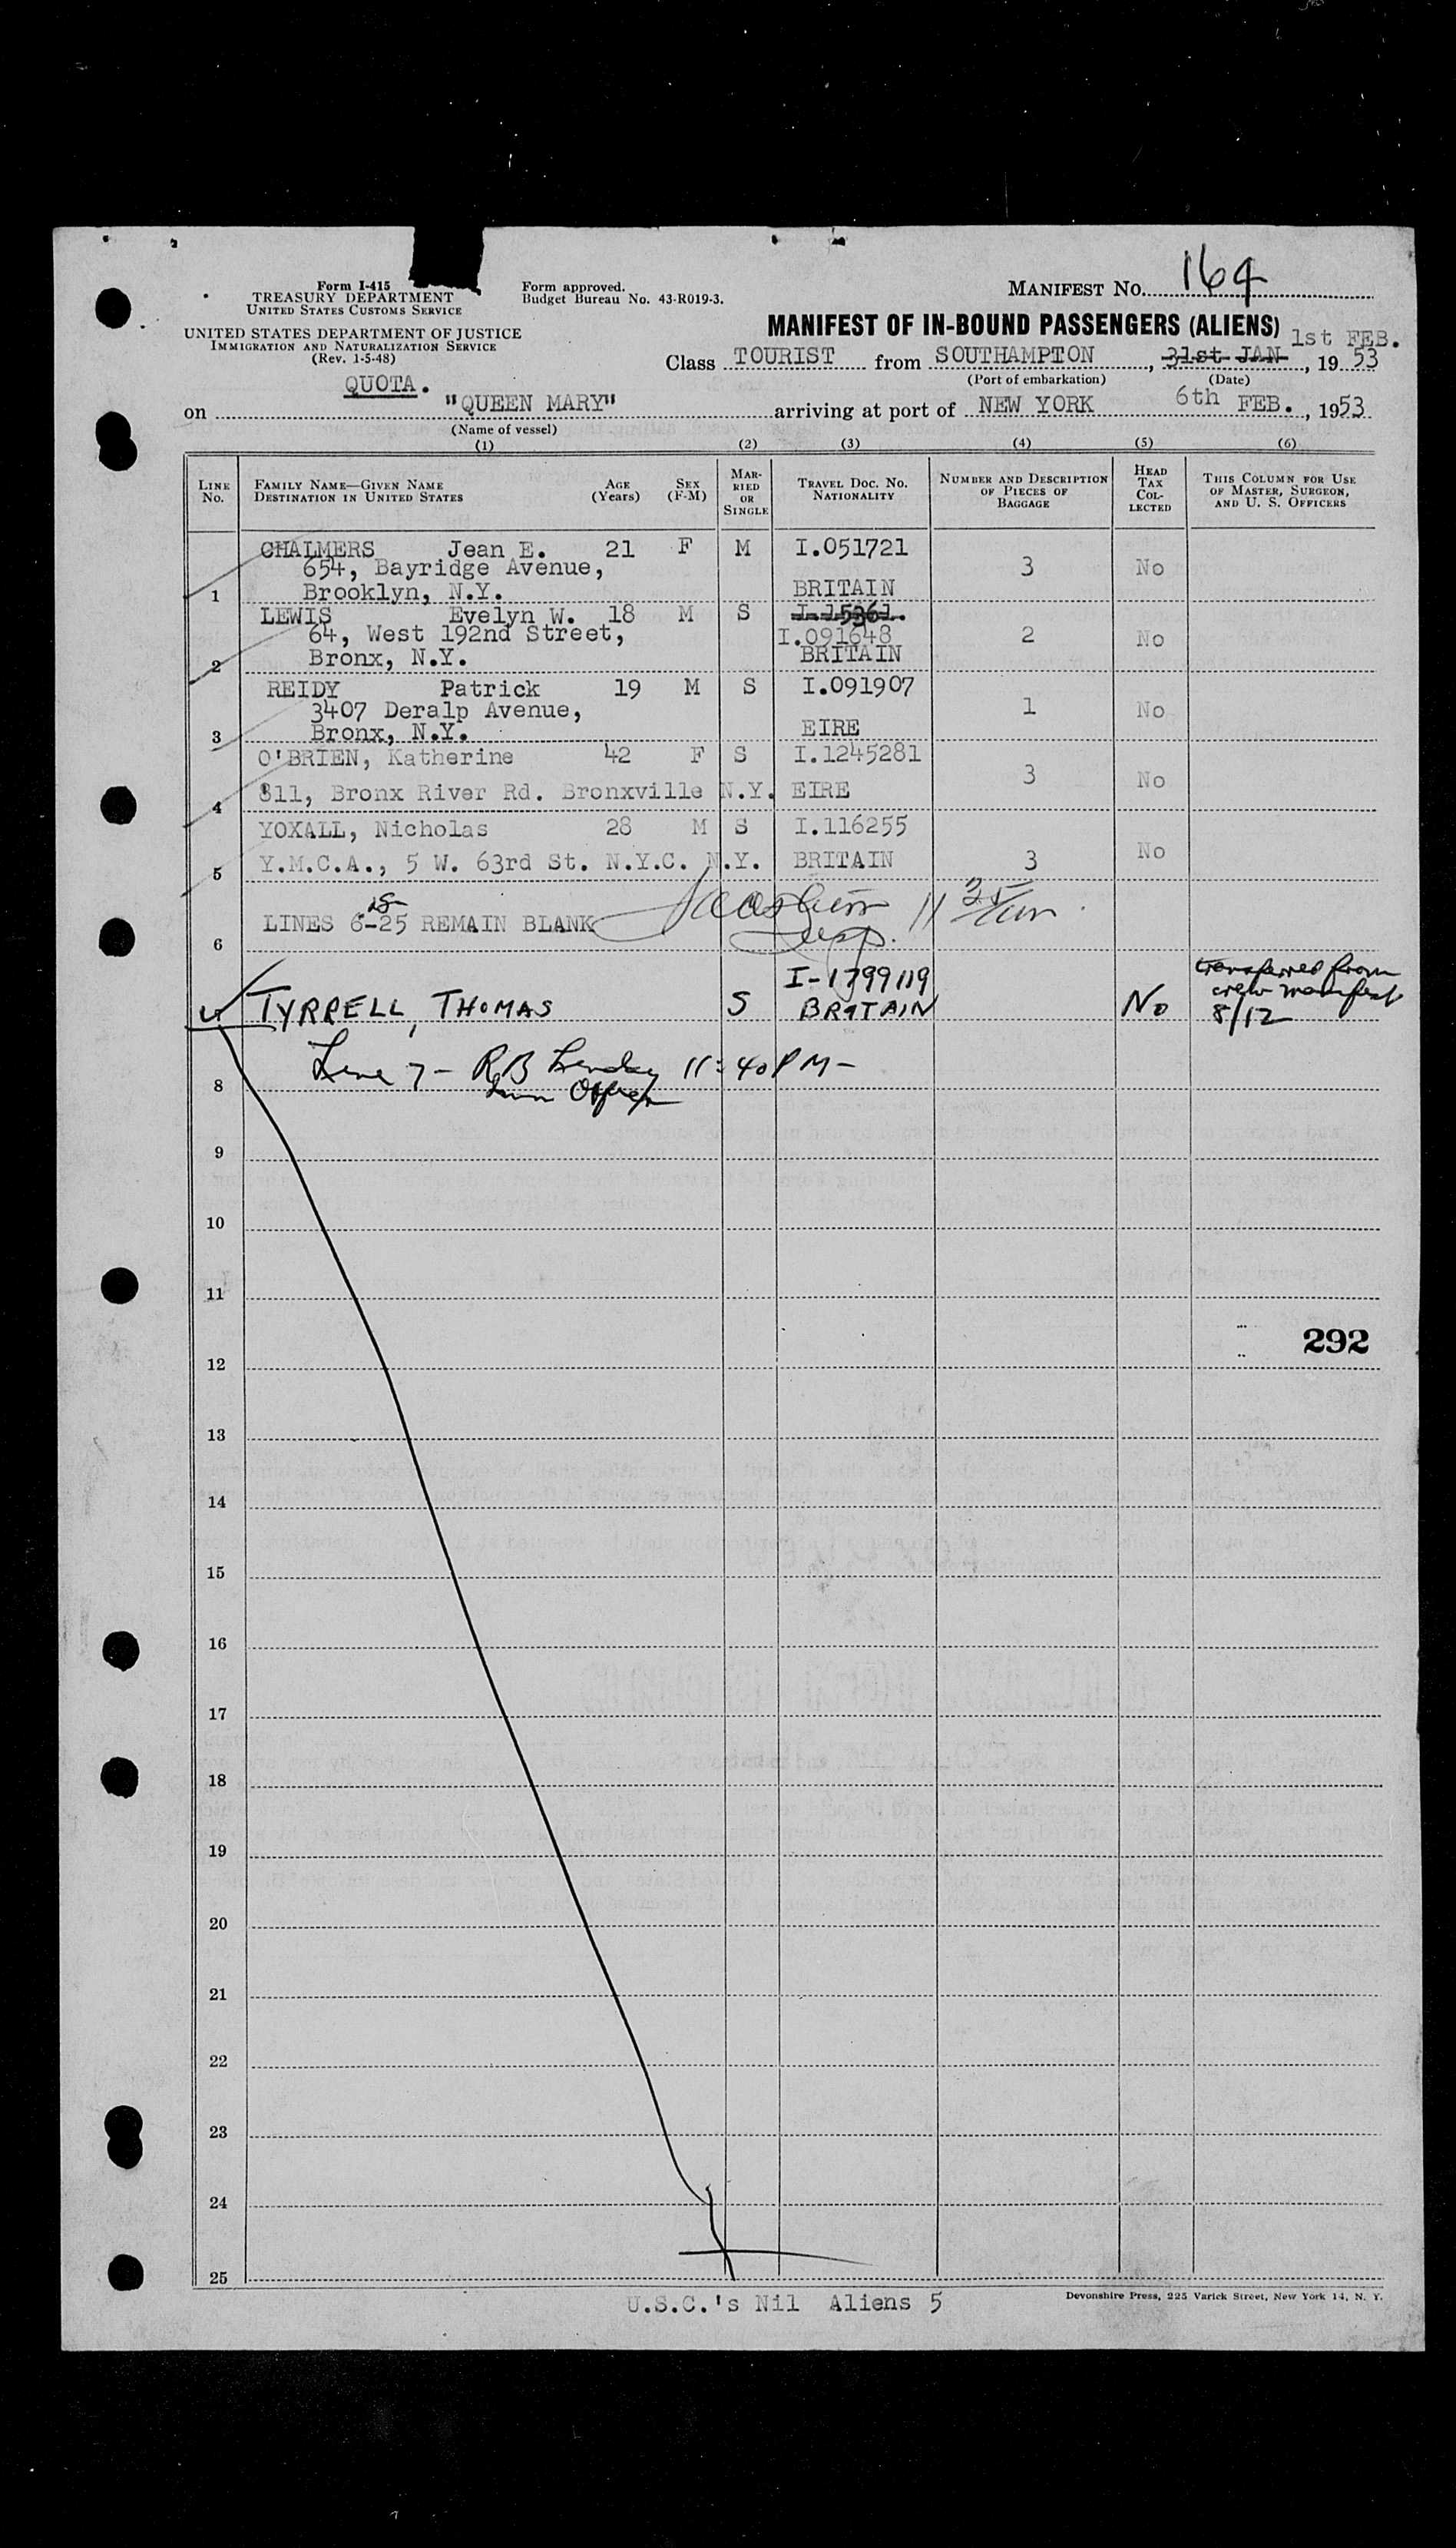 164
Form I-415
TREASURY DEPARTMENT
UNITED STATES CUSTOMS SERVICE
Form approved.
Budget Bureau No. 43-R019-3.
MANIFEST NO.
UNITED STATES DEPARTMENT OF JUSTICE
IMMIGRATION AND NATURALIZATION SERVICE
(Rev. 1-5-48)
MANIFEST OF IN-BOUND PASSENGERS (ALIENS)
1st FEB.
Class TOURIST from SOUTHAMPTON, 31st JAN, 19 53
(Port of embarkation) (Date)
QUOTA.
on "QUEEN MARY" arriving at port of NEW YORK 6th FEB., 1953
(Name of vessel)
(1) (2) (3) (4) (5) (6)
LINE No. FAMILY NAME—GIVEN NAME DESTINATION IN UNITED STATES AGE (Years) SEX (F-M) MARRIED OR SINGLE TRAVEL DOC. NO. NATIONALITY NUMBER AND DESCRIPTION OF PIECES OF BAGGAGE HEAD TAX COLLECTED THIS COLUMN FOR USE OF MASTER, SURGEON, AND U. S. OFFICERS
CHALMERS Jean E. 21 F M I.051721
654, Bayridge Avenue, 3 No
1 Brooklyn, N.Y. BRITAIN
LEWIS Evelyn W. 18 M S I.15361.
64, West 192nd Street, I.091648 2 No
2 Bronx, N.Y. BRITAIN
REIDY Patrick 19 M S I.091907
3407 Deralp Avenue, 1 No
3 Bronx, N.Y. EIRE
O'BRIEN, Katherine 42 F S I.1245281
3 No
4 811, Bronx River Rd. Bronxville N.Y. EIRE
YOXALL, Nicholas 28 M S I.116255
5 Y.M.C.A., 5 W. 63rd St. N.Y.C. N.Y. BRITAIN 3 No
LINES 6-25 REMAIN BLANK 11 35
6 Insp.
I-1799119 transferred from
TYRRELL, THOMAS S BRITAIN No crew manifest
8/12
Line 7 - RB 11:40 PM -
8 Imm Officer
9
10
11
292
12
13
14
15
16
17
18
19
20
21
22
23
24
25
U.S.C.'s Nil Aliens 5
Devonshire Press, 225 Varick Street, New York 14, N. Y.